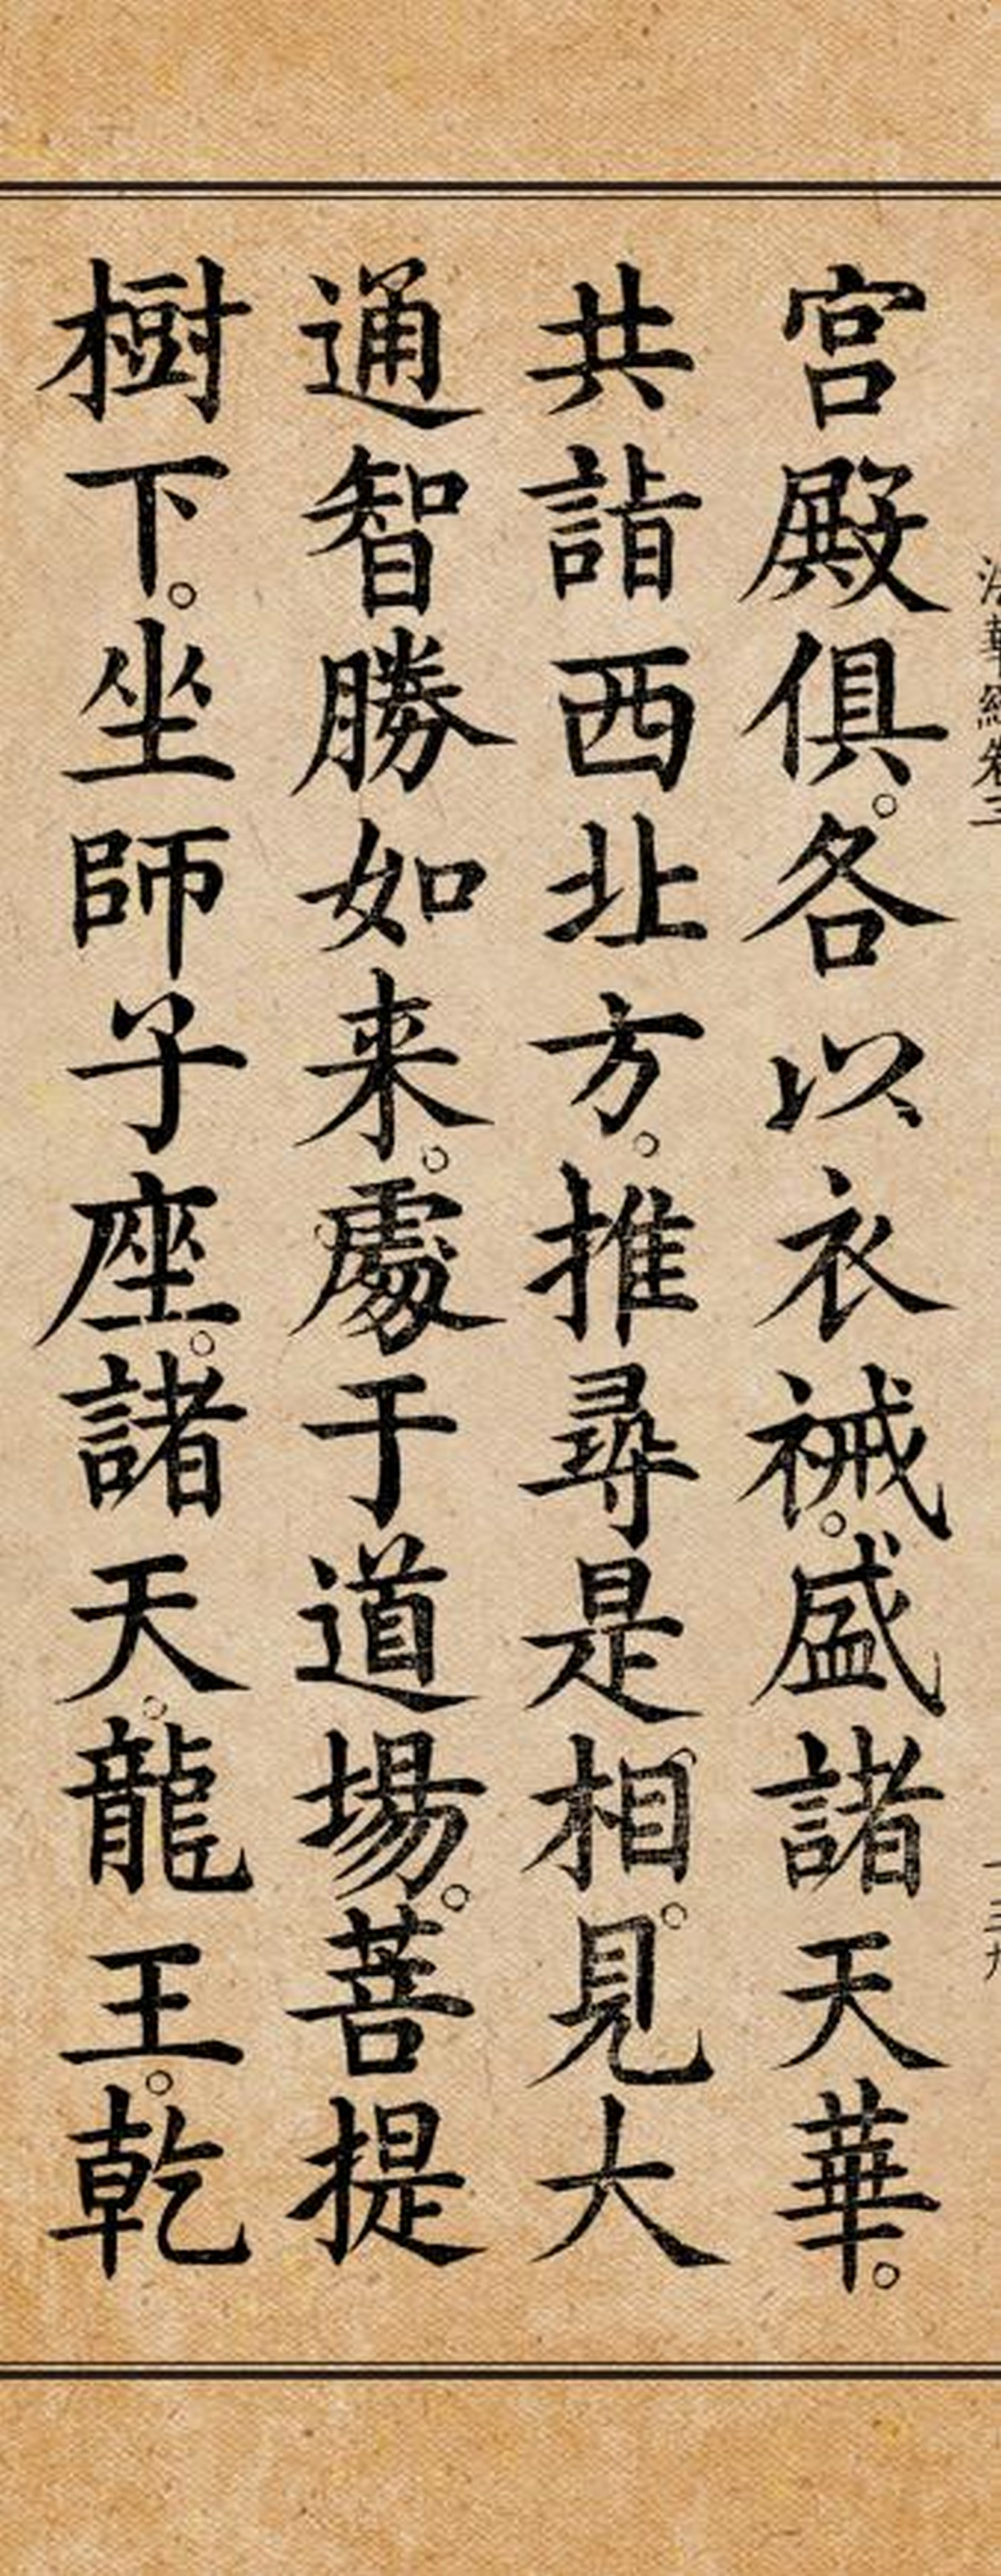 法華經卷三 一三九
宮殿俱。各以衣祴。盛諸天華。
共詣西北方。推尋是相。見大
通智勝如来。處于道場。菩提
樹下。坐師子座。諸天。龍王。乾